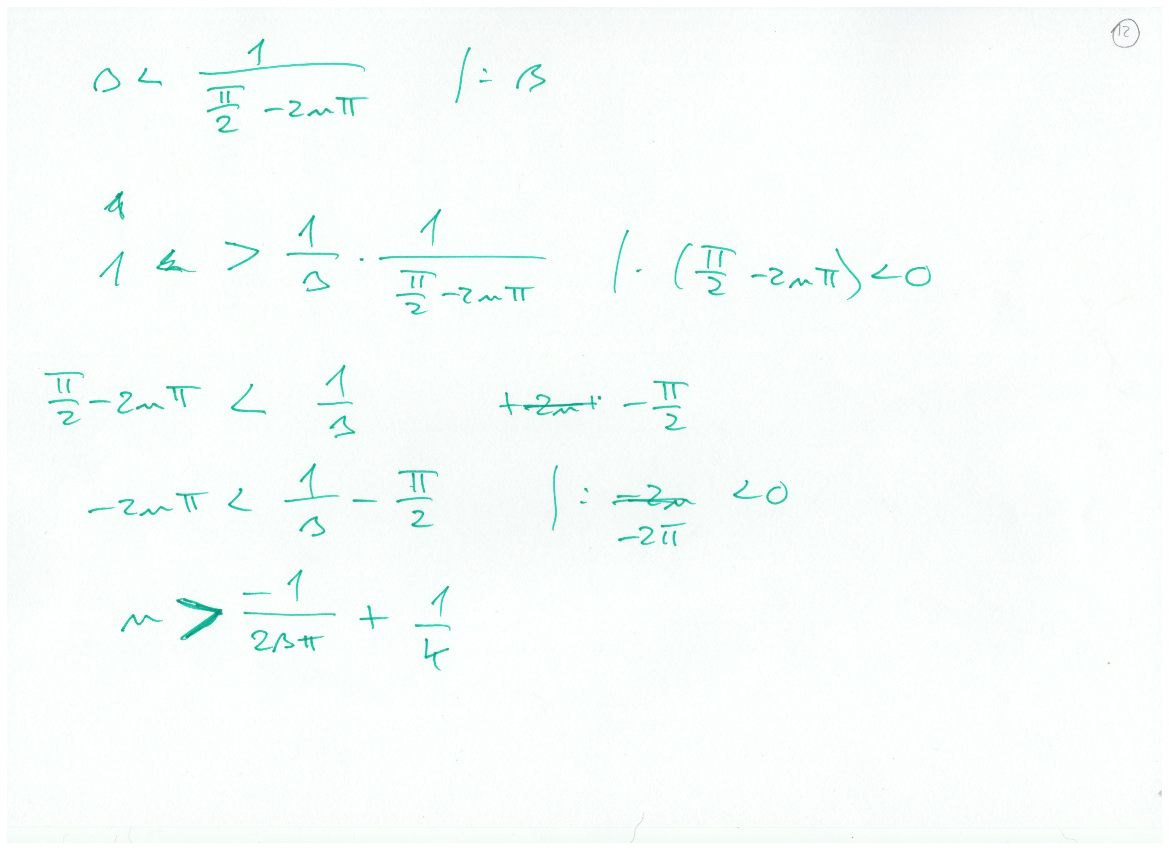 12
β < 1/(π/2 - 2nπ) | : β
1 > 1/β · 1/(π/2 - 2nπ) | · (π/2 - 2nπ) < 0
π/2 - 2nπ < 1/β - π/2
-2nπ < 1/β - π/2 | : -2π < 0
n > -1/(2βπ) + 1/4